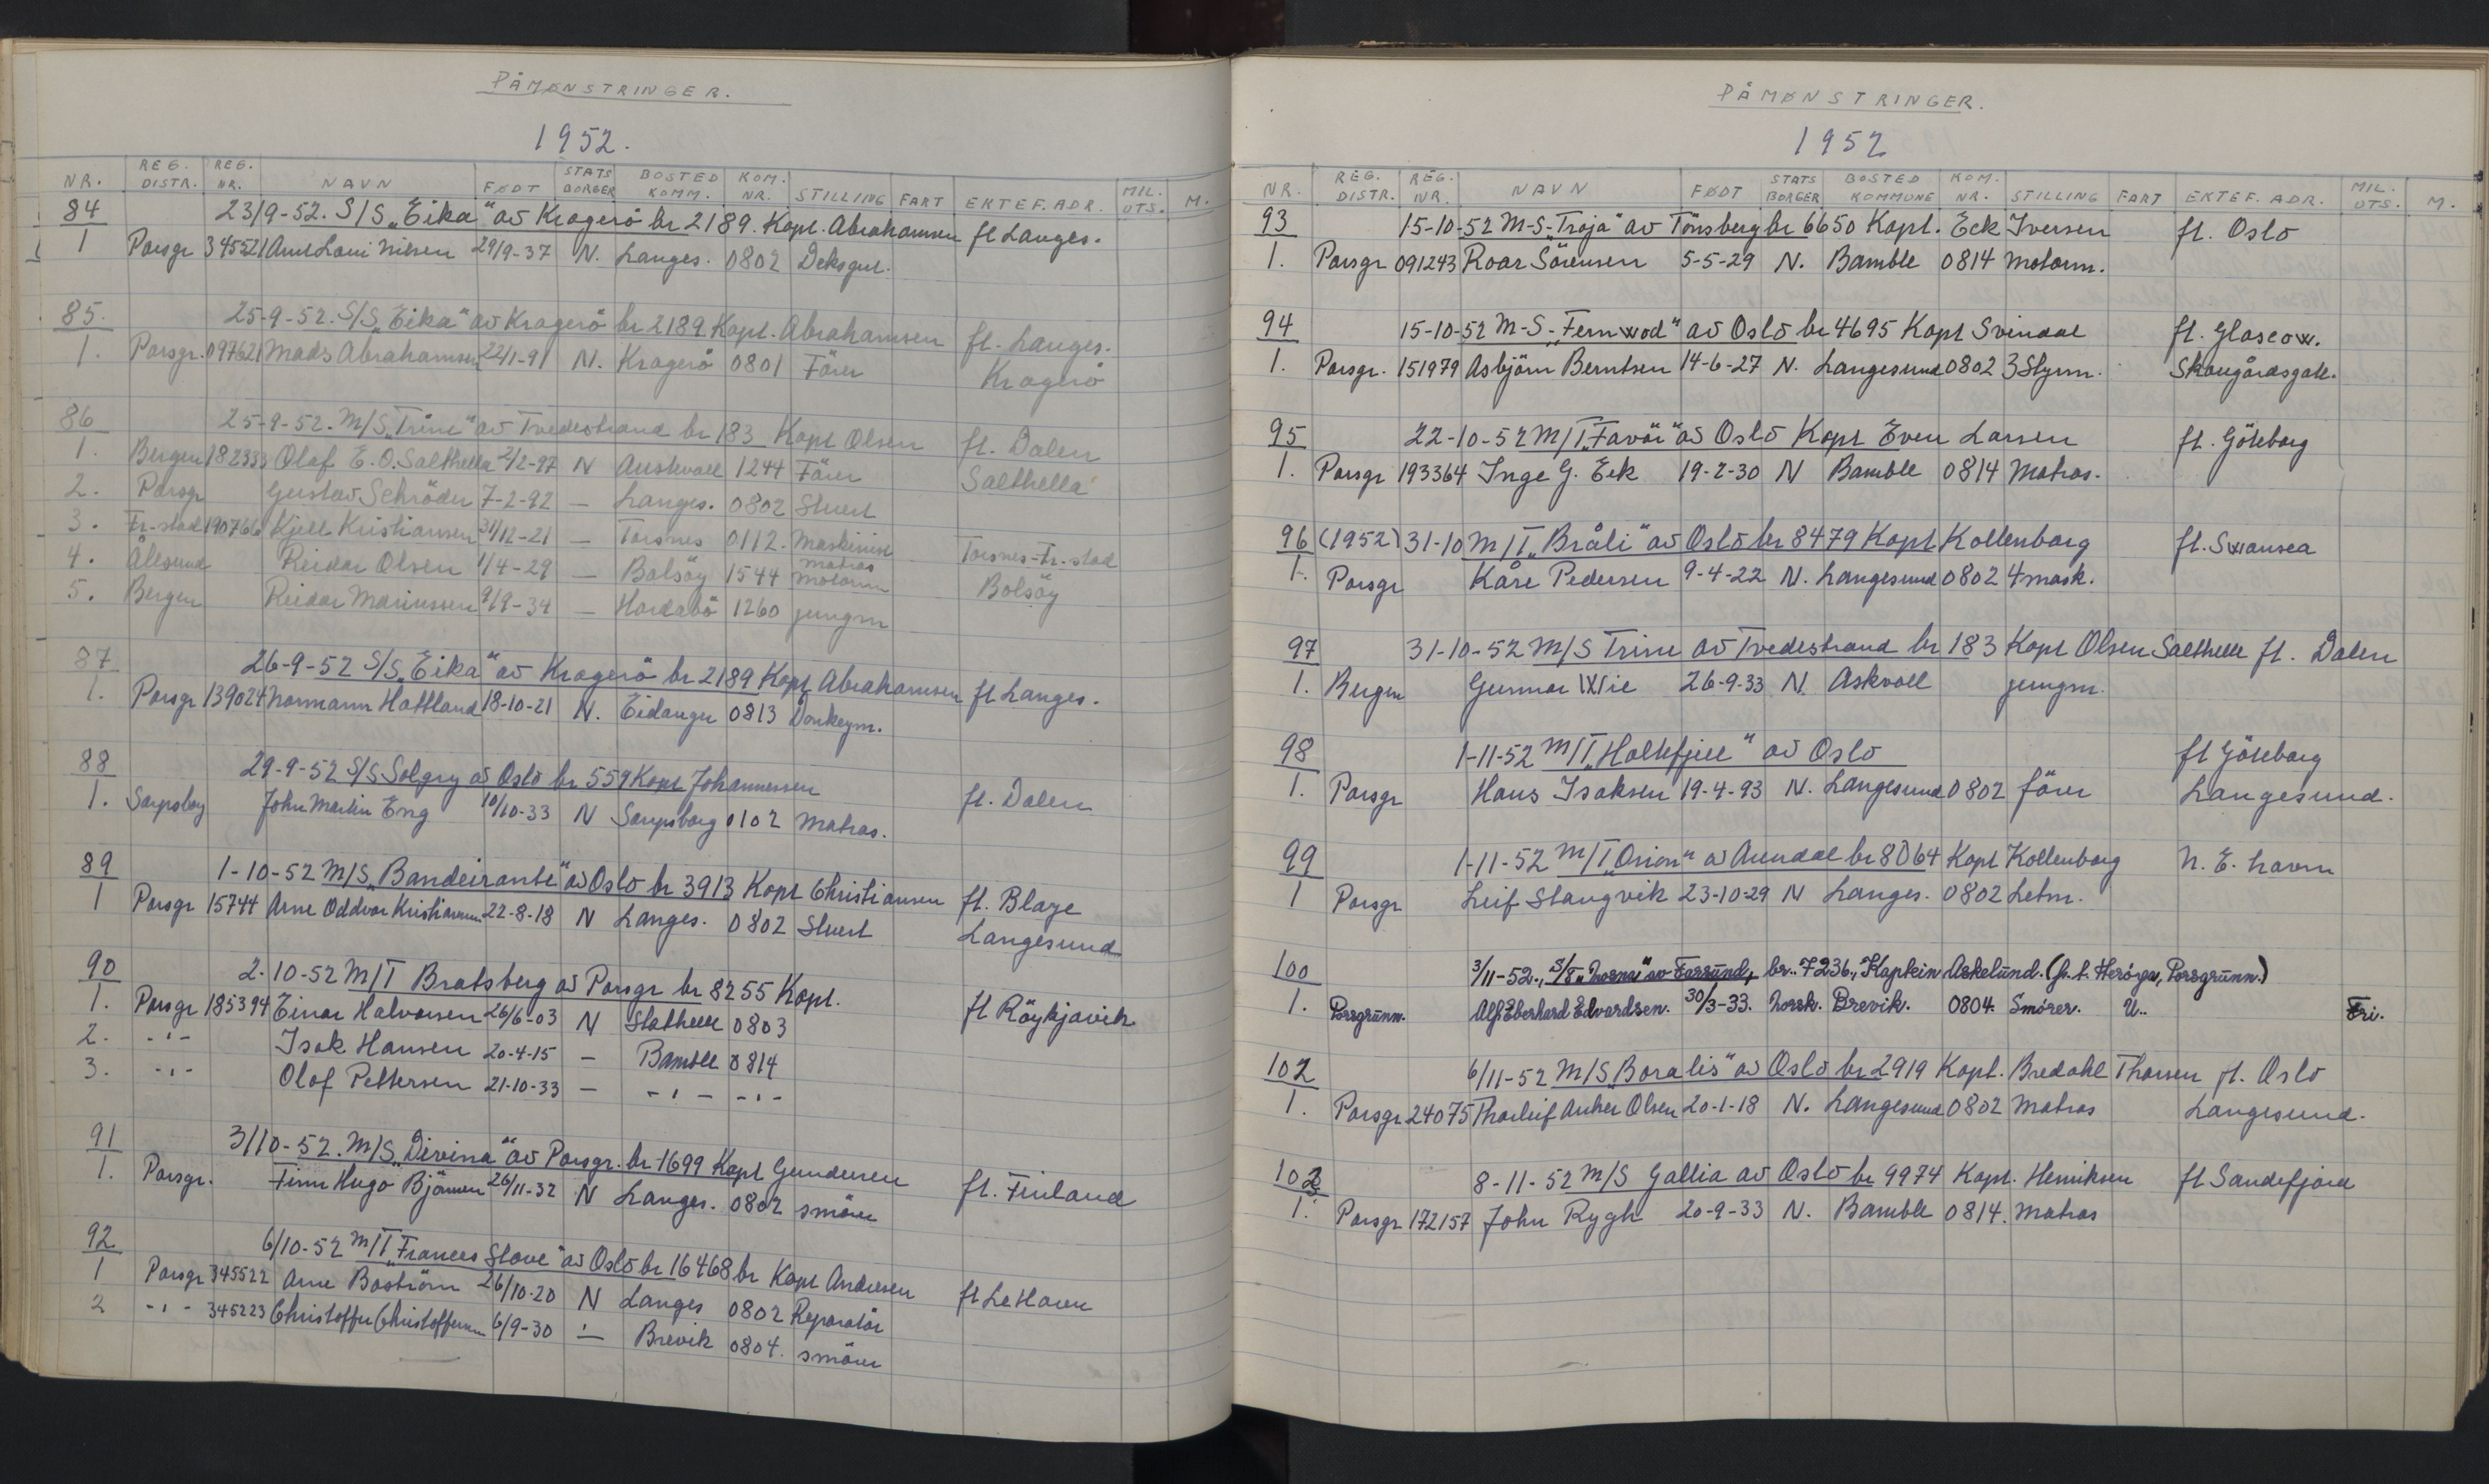 PÅMØNSTRINGER.
1952.
NR. REG. DISTR. REG. NR. NAVN FØDT STATS BORGER BOSTED KOMM. KOM. NR. STILLING FART EKTEF. ADR. MIL. UTS. M.
84 23/9-52. S/S „Eika" av Kragerö br 2189. Kapt. Abrahamsen fl Langes.
1 Porsgr 345521 Nilsen 29/9-37 N. Langes. 0802 Deksgut.
85. 25-9-52. S/S „Eika" av Kragerö br 2189 Kapt. Abrahamsen fl. Langes.
1. Porsgr. 097621 Mads Abrahamsen 22/1-91 N. Kragerö 0801 Förer Kragerö
86 25-9-52. M/S „Trine" av Tvedestrand br 183 Kapt Olsen fl. Dalen
1. Bergen 182333 Olaf E. O. Salthella 2/2-97 N Austevoll 1244 Förer Salthella
2. Porsgr Gustav Schröder 7-2-92 — Langes. 0802 Stuert
3. Fr-stad 190766 Kjell Kristiansen 31/12-21 — Torsnes 0112. Maskinist Torsnes-Fr-stad
4. Ålesund Reidar Olsen 1/4-29 — Bolsöy 1544 matros motorm Bolsöy
5. Bergen Reidar Mariussen 9/9-34 — Hordabö 1260 jungm
87 26-9-52 S/S „Eika" av Kragerö br 2189 Kapt Abrahamsen fl Langes.
1. Porsgr 139024 Normann Hattland 18-10-21 N. Eidanger 0813 Donkeym.
88 29-9-52 S/S Solgry av Oslo br 559 Kapt Johannessen fl. Dalen
1. Sarpsborg John Martin Eng 10/10-33 N Sarpsborg 0102 Matros.
89 1-10-52 M/S „Bandeirante" av Oslo br 3913 Kapt Christiansen fl. Blaye
1 Porsgr 15744 Arne Oddvar Kristiansen 22-8-18 N Langes. 0802 Stuert Langesund
90 2-10-52 M/T Bratsberg av Porsgr br 8255 Kapt. fl Röykjavik
1. Porsgr 185394 Einar Halvorsen 26/6-03 N Stathelle 0803
2. -"- Isak Hansen 20-4-15 — Bamble 0814
3. -"- Olaf Pettersen 21-10-33 — -"- -"-
91 3/10-52. M/S „Divina" av Porsgr. br 1699 Kapt Gundersen fl. Finland
1. Porsgr. Finn Hugo Björnsen 26/11-32 N Langes. 0802 smörer
92 6/10-52 M/T „Frances Stove" av Oslo br 16468 br Kapt Andresen fl Le Havre
1 Porsgr 345522 Arne Boström 26/10-20 N Langes 0802 Reparatör
2 -"- 345223 Christoffer Christoffersen 6/9-30 -"- Brevik 0804. smörer
PÅMØNSTRINGER.
1952
NR. REG. DISTR. REG. NR. NAVN FØDT STATS BORGER BOSTED KOMMUNE KOM. NR. STILLING FART EKTEF. ADR. MIL. UTS. M.
93 15-10-52 M-S- „Troja" av Tönsberg br 6650 Kapt. Eck Iversen fl. Oslo
1. Porsgr 091243 Roar Sörensen 5-5-29 N. Bamble 0814 motorm.
94 15-10-52 M-S- „Fernwod" av Oslo br 4695 Kapt Svindal fl. Glascow.
1. Porsgr. 151979 Asbjörn Berntsen 14-6-27 N. Langesund 0802 3 Styrm. Skougårdsgate.
95 22-10-52 M/T „Favör" av Oslo Kapt Even Larsen fl. Göteborg
1. Porsgr 193364 Inge G. Eek 19-2-30 N Bamble 0814 Matros.
96 (1952) 31-10 M/T „Bråli" av Oslo br 8479 Kapt Kollenborg fl. Swansea
1. Porsgr Kåre Pedersen 9-4-22 N. Langesund 0802 4 mask.
97 31-10-52 M/S Trine av Tvedestrand br 183 Kapt Olsen Salthelle fl. Dalen
1. Bergen Gunnar Wie 26-9-33 N. Askvoll jungm.
98 1-11-52 M/T „Haltefjell" av Oslo fl Göteborg
1. Porsgr Hans Isaksen 19-4-93 N. Langesund 0802 förer Langesund.
99 1-11-52 M/T „Orion" av Arendal br 8064 Kapt Kollenborg N. E. havn
1 Porsgr Leif Stangvik 23-10-29 N Langes. 0802 Letm.
100 3/11-52., S/T „Norna" av Farsund, br. 7236., Kaptein Askelund. (p. t. Heröya, Porsgrunn.)
1. Porsgrunn. Alf Eberhard Edvardsen. 30/3-33. Norsk. Brevik. 0804. Smörer. U.. Fri.
102 6/11-52 M/S „Boralis" av Oslo br 2919 Kapt. Bredahl Thorsen fl. Oslo
1. Porsgr 24075 Thorleif Anker Olsen 20-1-18 N. Langesund 0802 Matros Langesund.
103 8-11-52 M/S Gallia av Oslo br 9974 Kapt. Henriksen fl Sandefjord
1. Porsgr 172157 John Rygh 20-9-33 N. Bamble 0814. Matros